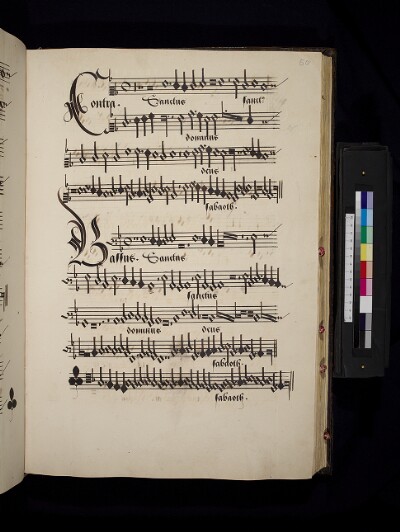 Contra. Sanctus sanctus
dominus
deus
sabaoth.
Bassus. Sanctus
sanctus
dominus deus
sabaoth.
sabaoth.